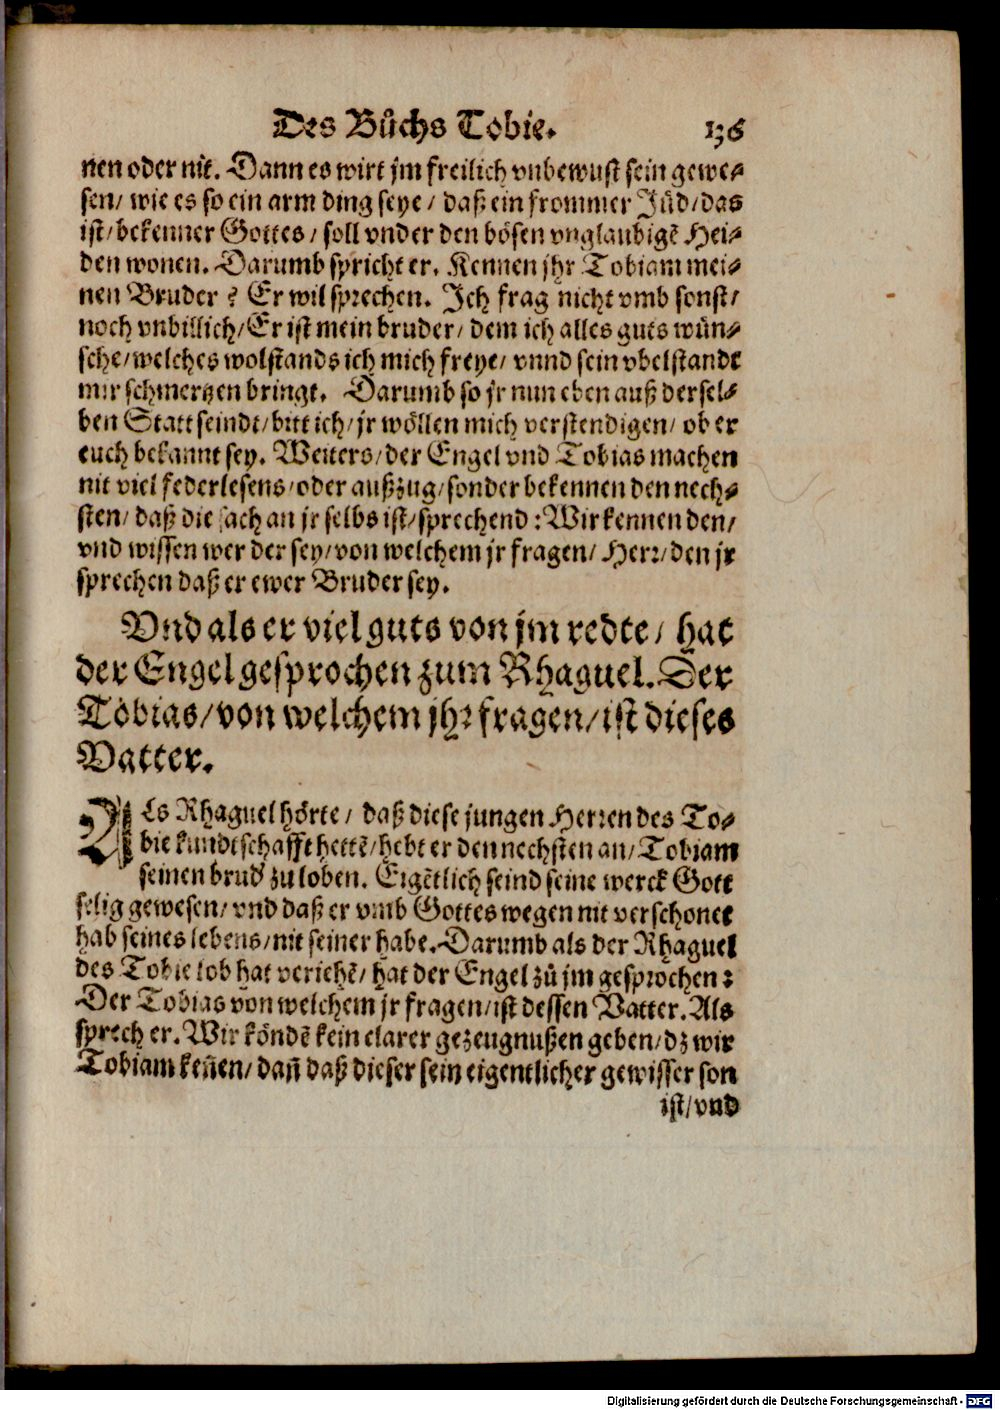 Des Bůchs Tobie. 136
nen oder nit. Dann es wirt jm freilich vnbewust sein gewe⸗
sen/ wie es so ein arm ding seye/ daß ein frommer Jůd/ das
ist/ bekenner Gottes/ soll vnder den bösen vnglaubigẽ Hei⸗
den wonen. Darumb spricht er. Kennen jhr Tobiam mei⸗
nen Bruder? Er wil sprechen. Ich frag nicht vmb sonst/
noch vnbillich/ Er ist mein bruder/ dem ich alles guts wün⸗
sche/ welches wolstands ich mich freye/ vnnd sein vbelstandt
mir schmertzen bringt. Darumb so jr nun eben auß dersel⸗
ben Statt seindt/ bitt ich/ jr wöllen mich verstendigen/ ob er
euch bekannt sey. Weiters/ der Engel vnd Tobias machen
nit viel federlesens/ oder außzug/ sonder bekennen den nech⸗
sten/ daß die sach an jr selbs ist/ sprechend: Wir kennen den/
vnd wissen wer der sey/ von welchem jr fragen/ Herr/ den jr
sprechen daß er ewer Bruder sey.
Vnd als er viel guts von jm redte/ hat
der Engel gesprochen zum Rhaguel. Der
Tobias/ von welchem jhr fragen/ ist dieses
Vatter.
ALs Rhaguel hörte/ daß diese jungen Herren des To⸗
bie kundtschafft hettẽ/ hebt er den nechsten an/ Tobiam
seinen brud' zu loben. Eigẽtlich seind seine werck Gott
selig gewesen/ vnd daß er vmb Gottes wegen nit verschonet
hab seines lebens/ nit seiner habe. Darumb als der Rhaguel
des Tobie lob hat verichẽ/ hat der Engel zů jm gesprochen:
Der Tobias von welchem jr fragen/ ist dessen Vatter. Als
sprech er. Wir köndẽ kein clarer gezeugnußen geben/ dz wir
Tobiam keñen/ dañ daß dieser sein eigentlicher gewisser son
ist/ vnd
Digitalisierung gefördert durch die Deutsche Forschungsgemeinschaft - DFG